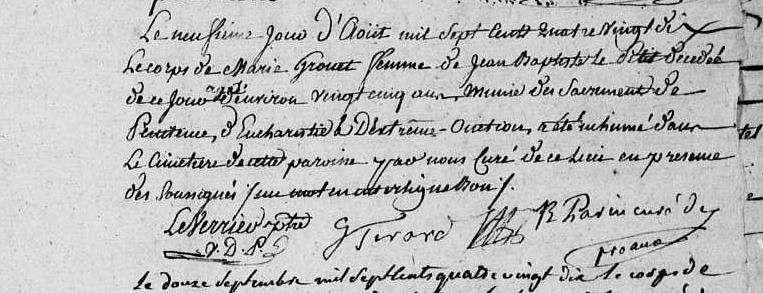 Le neufieme Jour d'Aoüt mil Sept Cents Quatre Vingt dix
Le corps de Marie Grouet femme de Jean Baptiste le Petit decedé
de ce Jour agé d'environ vingt cinq ans, munie des Sacrements de
Penitence, d'Eucharistie & D'extrême-Onction, a été inhumé dans
Le Cimetiere de cette paroisse par nous Curé de ce Lieu en presence
des Soussignés / un mot en interligne Bon /.
LeVerrier ptre
v. D. P.
G Tirard
R Parin curé de
Le douze Septembre mil Sept Cents quatre vingt dix le corps de